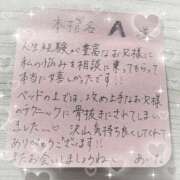 本指名 A 様
人生経験が豊富なお父様に
私の悩みを相談に乗ってもらって
本当に嬉しかったです!!
ベッドの上では、攻め上手なお父様
のテクニックに骨抜きにされてしまい
ました…♡ 沢山気持ち良くしてくれて
ありがとうございます!!
またお会いしましょうね